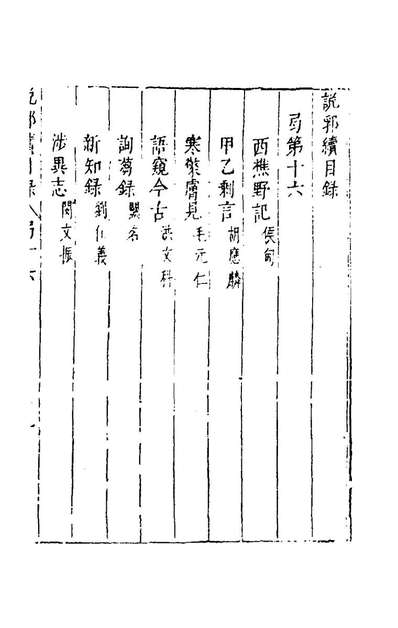 說郛續目錄
弓第十六
西樵野記 侯甸
甲乙剩言 胡應麟
寒檠膚見 毛元仁
語窺今古 洪文科
詢蒭錄 闕名
新知錄 劉仕義
涉異志 閔文振
說郛續目錄 弓十六